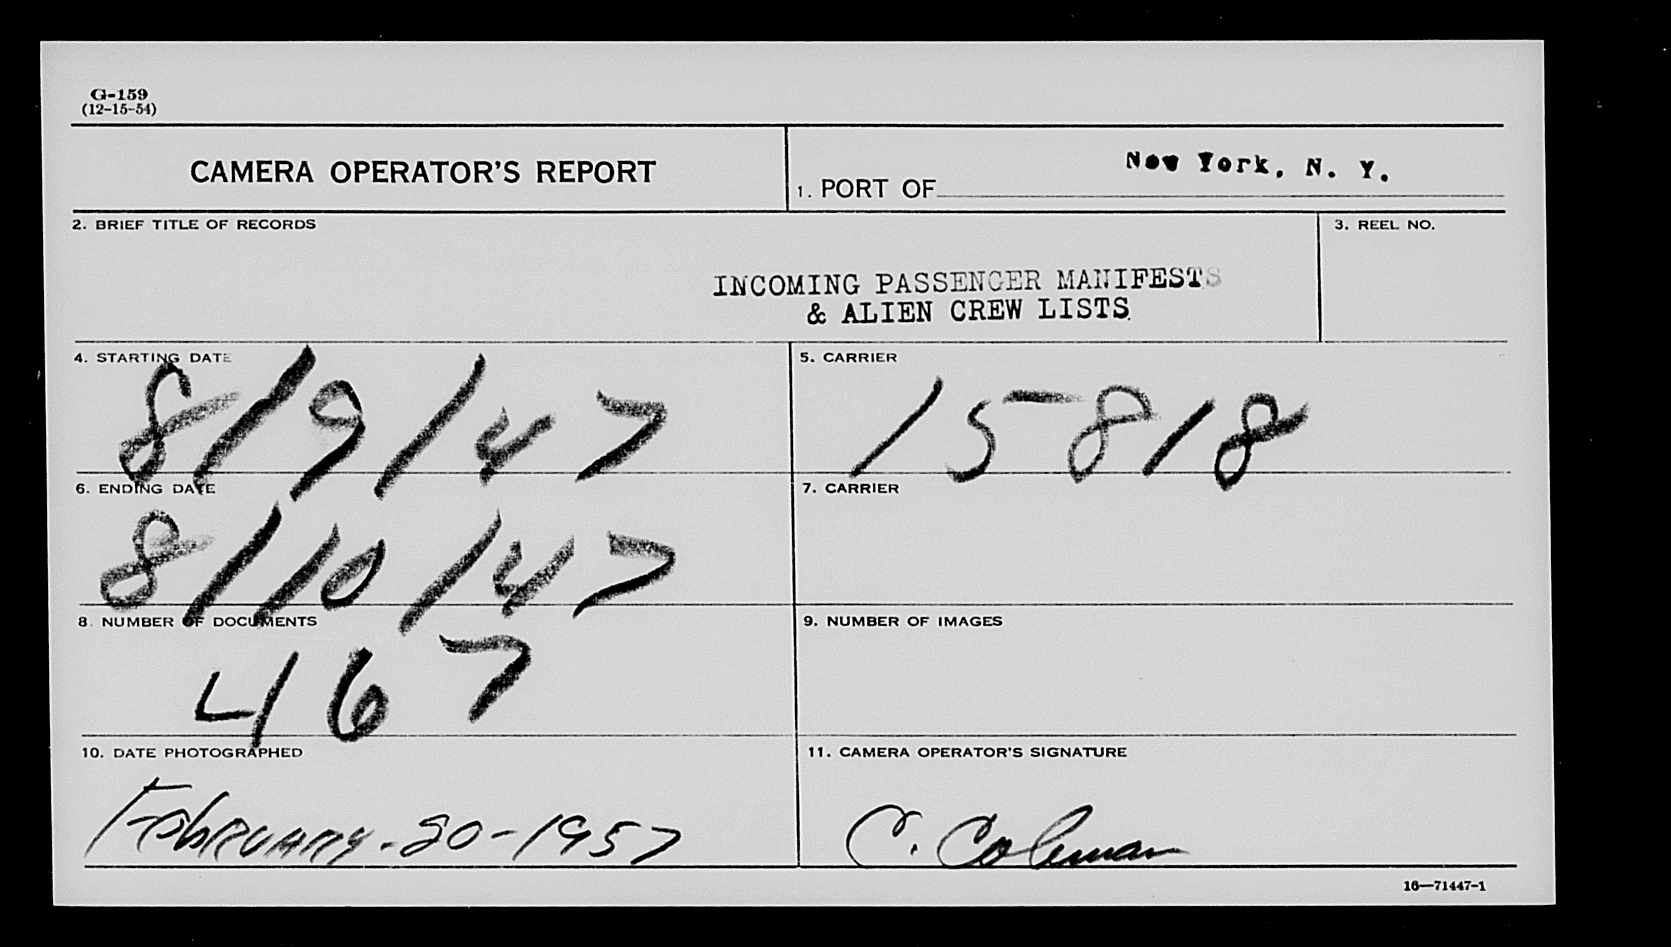 G-159
(12-15-54)
CAMERA OPERATOR'S REPORT
1. PORT OF New York, N. Y.
2. BRIEF TITLE OF RECORDS
3. REEL NO.
INCOMING PASSENGER MANIFESTS
& ALIEN CREW LISTS
4. STARTING DATE
5. CARRIER
8/9/47
15818
6. ENDING DATE
7. CARRIER
8/10/47
8. NUMBER OF DOCUMENTS
9. NUMBER OF IMAGES
467
10. DATE PHOTOGRAPHED
11. CAMERA OPERATOR'S SIGNATURE
February-20-1957
C. Coleman
16—71447-1